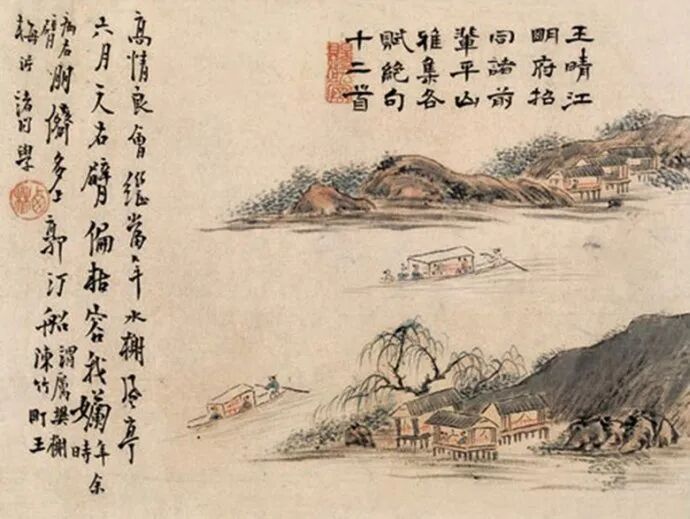 王晴江
明府招
同諸前
輩平山
雅集各
賦絕句
十二首
高情良會繼當年水榭風亭
六月天右臂偏枯容我嬾年余時
病右臂朋儔多上郭汀船謂厲樊榭陳竹町王
梅沜諸同學